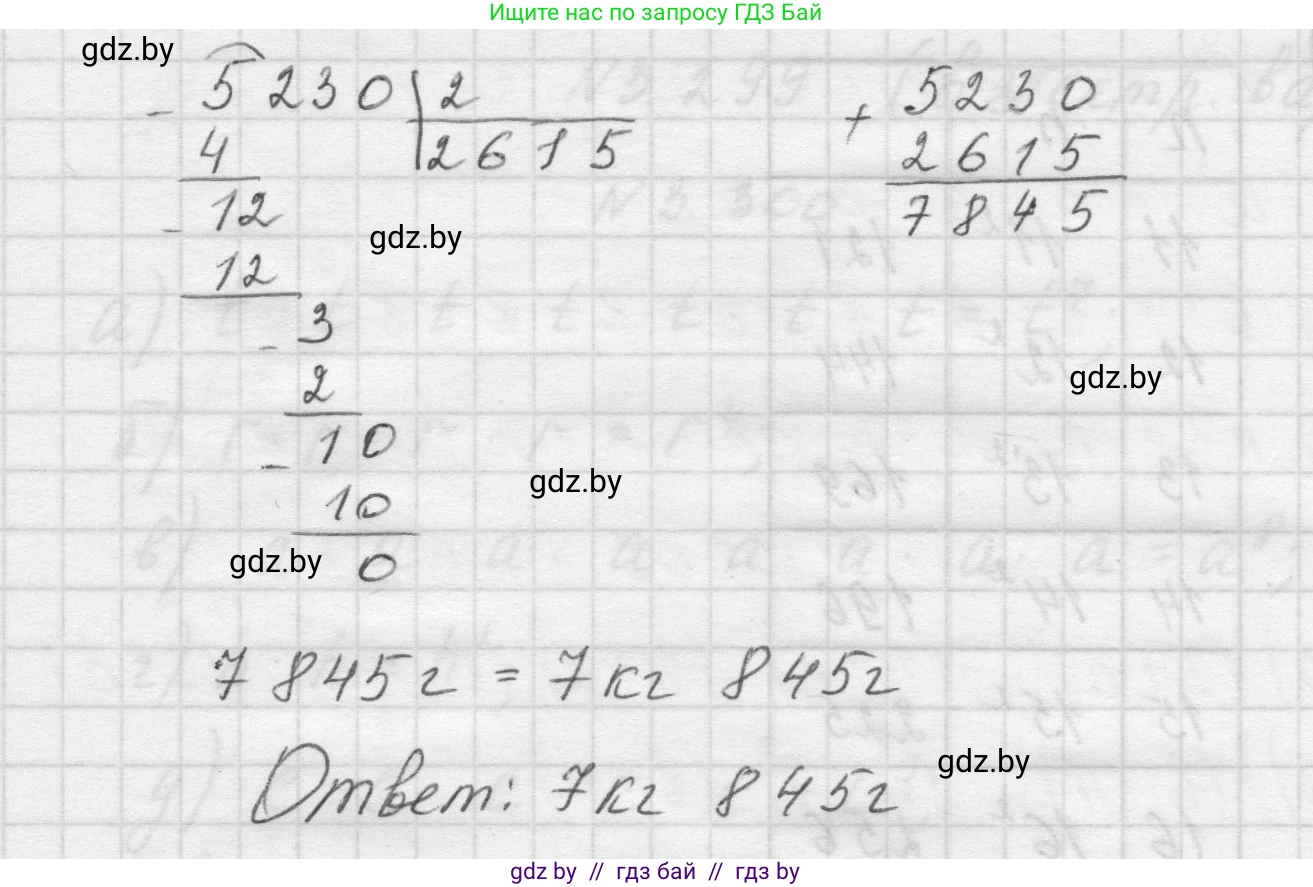 Ищите нас по запросу ГДЗ Бай
gdz.by
- 5230 | 2
4
2615
- 12
12
- 3
2
- 10
10
0
+ 5230
2615
7845
gdz.by
gdz.by
gdz.by
gdz.by
7 845г = 7кг 845г
Ответ: 7кг 845г
gdz.by
gdz.by // гдз бай // гдз by